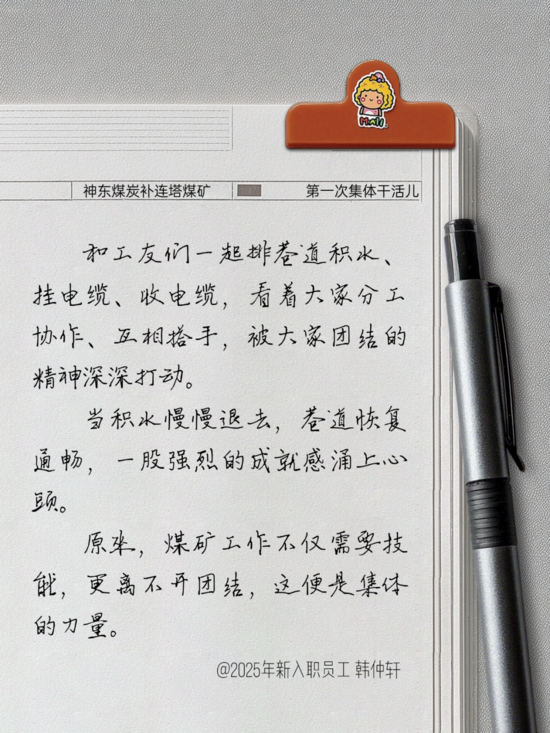 神东煤炭补连塔煤矿 第一次集体干活儿
和工友们一起排巷道积水、
挂电缆、收电缆，看着大家分工
协作、互相搭手，被大家团结的
精神深深打动。
当积水慢慢退去，巷道恢复
通畅，一股强烈的成就感涌上心
头。
原来，煤矿工作不仅需要技
能，更离不开团结，这便是集体
的力量。
@2025年新入职员工 韩仲轩